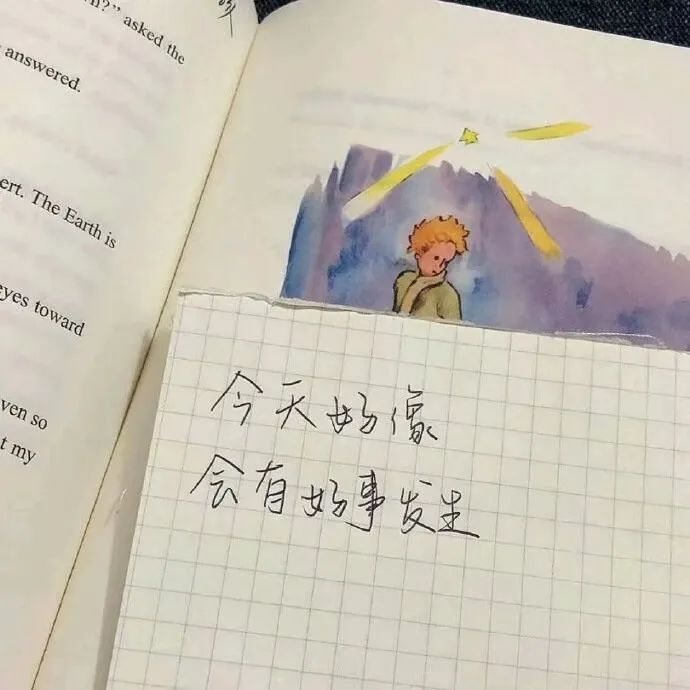 ?" asked the
answered.
ert. The Earth is
eyes toward
ven so
t my
今天好像
会有好事发生